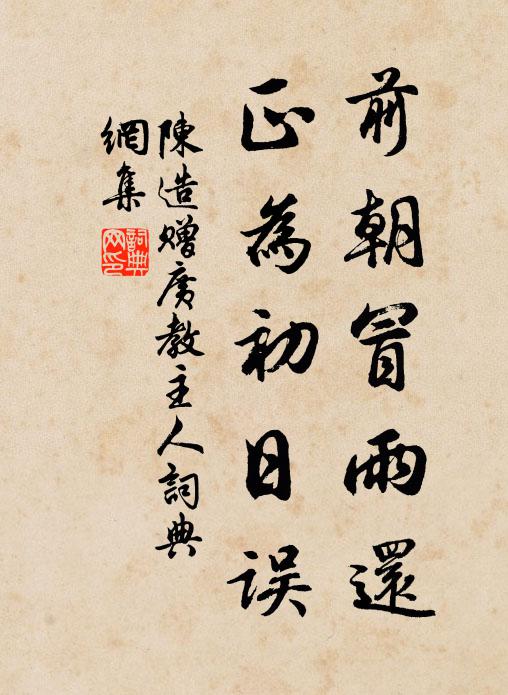 前朝冒雨還
正為初日误
陳造贈廣教主人詞典
網集
詞典
网印